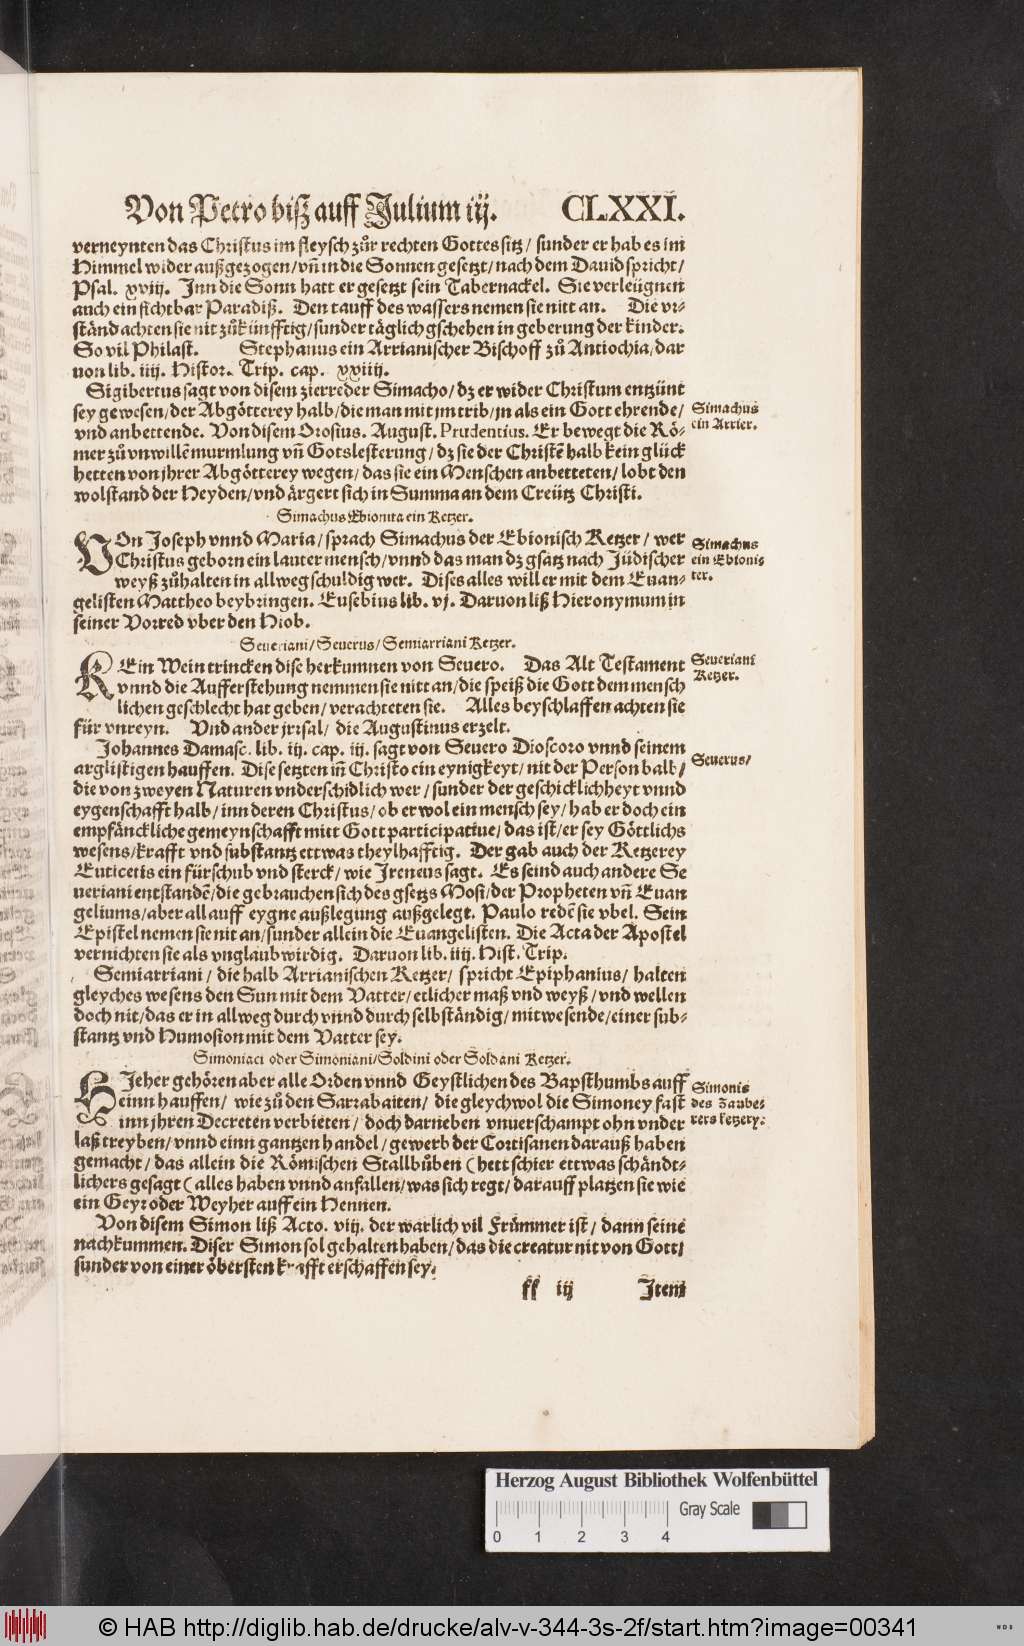 Von Petro biß auff Julium iij. CLXXI.
verneynten das Christus im fleysch zůr rechten Gottes sitz / sunder er hab es im
Himmel wider außgezogen / vñ in die Sonnen gesetzt / nach dem Dauid spricht /
Psal. xviij. Inn die Sonn hatt er gesetzt sein Tabernackel. Sie verleügnen
auch ein sichtbar Paradiß. Den tauff des wassers nemen sie nitt an. Die vr-
ständ achten sie nit zůkünfftig / sunder täglich gschehen in geberung der kinder.
So vil Philast. Stephanus ein Arrianischer Bischoff zů Antiochia / dar
uon lib. iiij. Histor. Trip. cap. xxiiij.
Sigibertus sagt von disem zierreder Simacho / dz er wider Christum entzünt
sey gewesen / der Abgötterey halb / die man mit jm trib / jn als ein Gott ehrende /
vnd anbettende. Von disem Orosius. August. Prudentius. Er bewegt die Rö-
mer zů vnwillẽ murmlung vñ Gotslesterung / dz sie der Christẽ halb kein glück
hetten von jhrer Abgötterey wegen / das sie ein Menschen anbetteten / lobt den
wolstand der Heyden / vnd ärgert sich in Summa an dem Creütz Christi.
Simachus ein Arrier.
Simachus Ebionita ein Ketzer.
VOn Joseph vnnd Maria / sprach Simachus der Ebionisch Ketzer / wer
Christus geborn ein lauter mensch / vnnd das man dz gsatz nach Jüdischer
weyß zůhalten in allweg schuldig wer. Dises alles will er mit dem Euan-
gelisten Mattheo beybringen. Eusebius lib. vj. Daruon liß Hieronymum in
seiner Vorred vber den Hiob.
Simachus
ein Ebionis
ter.
Seueriani / Seuerus / Semiarriani Ketzer.
KEin Wein trincken dise herkumnen von Seuero. Das Alt Testament
vnnd die Aufferstehung nemmen sie nitt an / die speiß die Gott dem mensch
lichen geschlecht hat geben / verachteten sie. Alles beyschlaffen achten sie
für vnreyn. Vnd ander jrrsal / die Augustinus erzelt.
Seueriani
Ketzer.
Johannes Damasc. lib. ij. cap. iij. sagt von Seuero Dioscoro vnnd seinem
arglistigen hauffen. Dise setzten iñ Christo ein eynigkeyt / nit der Person halb /
die von zweyen Naturen vnderschidlich wer / sunder der geschicklichheyt vnnd
eygenschafft halb / inn deren Christus / ob er wol ein mensch sey / hab er doch ein
empfänckliche gemeynschafft mitt Gott participatiue / das ist / er sey Göttlichs
wesens / krafft vnd substantz ettwas theylhafftig. Der gab auch der Ketzerey
Euticetis ein fürschub vnd sterck / wie Jreneus sagt. Es seind auch andere Se
ueriani entstandẽ / die gebrauchen sich des gsetzs Mosi / der Propheten vñ Euan
geliums / aber all auff eygne außlegung außgelegt. Paulo redẽ sie vbel. Sein
Epistel nemen sie nit an / sunder allein die Euangelisten. Die Acta der Apostel
vernichten sie als vnglaubwirdig. Daruon lib. iiij. Hist. Trip.
Seuerus /
Semiarriani / die halb Arrianischen Ketzer / spricht Epiphanius / halten
gleyches wesens den Sun mit dem Vatter / etlicher maß vnd weyß / vnd wellen
doch nit / das er in allweg durch vnnd durch selbständig / mitwesende / einer sub-
stantz vnd Humosion mit dem Vatter sey.
Simoniaci oder Simoniani / Soldini oder Soldani Ketzer.
HJeher gehören aber alle Orden vnnd Geystlichen des Bapsthumbs auff
einn hauffen / wie zů den Sarrabaiten / die gleychwol die Simoney fast
inn jhren Decreten verbieten / doch darneben vnuerschampt ohn vnder
laß treyben / vnnd einn gantzen handel / gewerb der Cortisanen darauß haben
gemacht / das allein die Römischen Stallbůben (hett schier ettwas schändt-
lichers gesagt (alles haben vnnd anfallen / was sich regt / darauff platzen sie wie
ein Geyr oder Weyher auff ein Hennen.
Simonis
des Zaube-
rers ketzery.
Von disem Simon liß Acto. viij. der warlich vil Frümmer ist / dann seine
nachkummen. Diser Simon sol gehalten haben / das die creatur nit von Gott /
sunder von einer öbersten krafft erschaffen sey.
kk iij Item
Herzog August Bibliothek Wolfenbüttel
Gray Scale
0 1 2 3 4
© HAB http://diglib.hab.de/drucke/alv-v-344-3s-2f/start.htm?image=00341